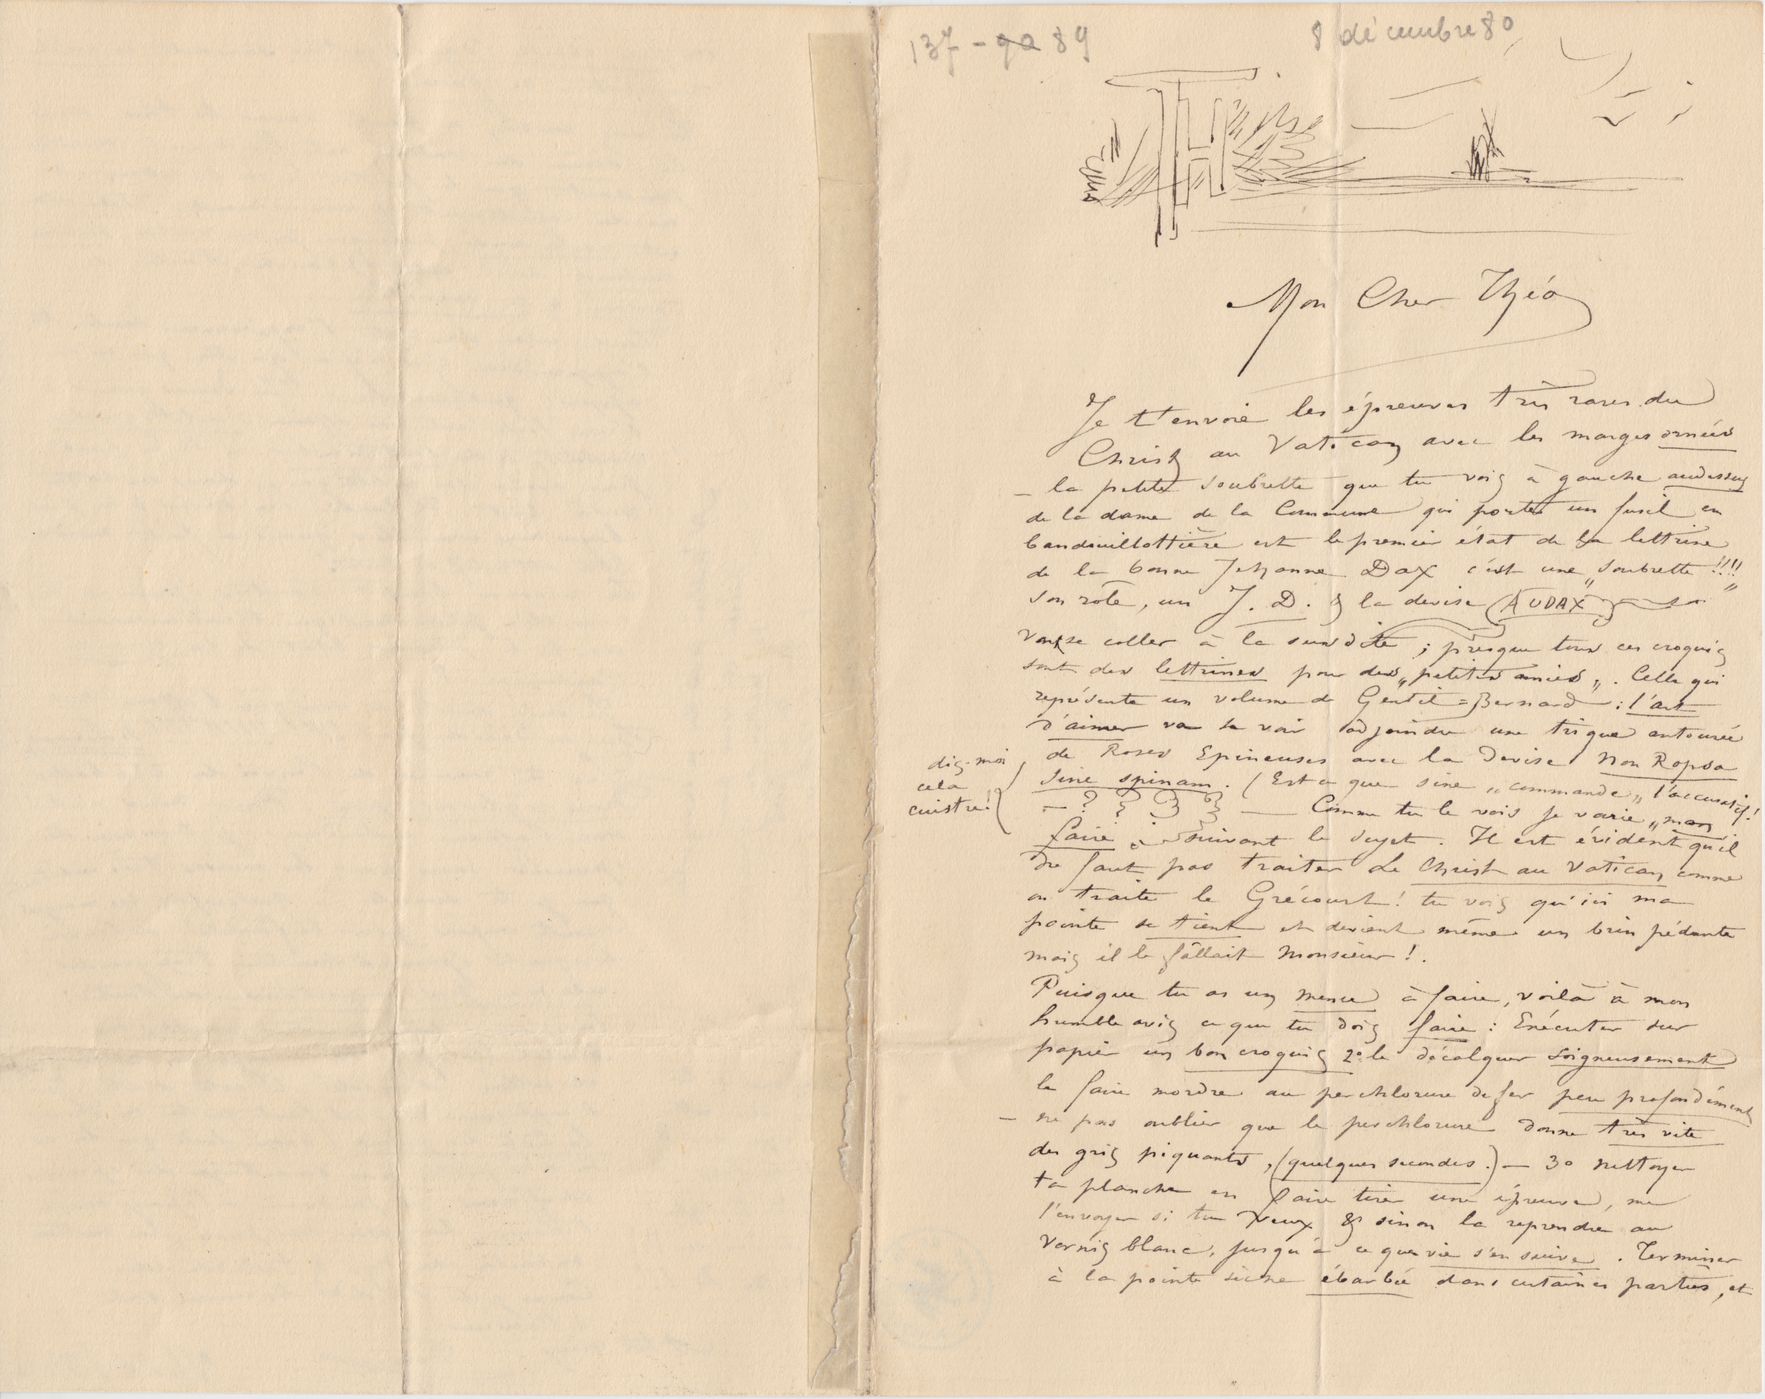 137 - 90 89
8 décembre 80
Mon Cher Théo
Je t'envoie les épreuves très rares du
Christ au Vatican avec les marges ornées
— la petite soubrette que tu vois à gauche audessus
de la dame de la Commune qui porte un fusil en
bandouillottière est le premier état de la lettrine
de la bonne Jehanne Dax c'est une „soubrette !!!! „
son rôle, un J. D. & la devise AUDAX
vont se coller à la susdite ; presque tous ces croquis
sont des lettrines pour des „petites amies„. Celle qui
représente un volume de Gentil=Bernard : l'art
d'aimer va se voir adjoindre une trique entourée
de Roses Epineuses avec la Devise Non Roposa
sine spinam. (Est ce que sine „commande„ l'accusatif!
dis-moi
cela
cuistre!
— ? ? ? ? — Comme tu le vois je varie „mon
faire„ suivant le sujet. Il est évident qu'il
ne faut pas traiter Le Christ au Vatican comme
on traite le Grécourt ! tu vois qu'ici ma
pointe se tient et devient même un brin pédante
mais il le fâllait Monsieur !.
Puisque tu as un menu à faire, voilà à mon
humble avis ce que tu dois faire : Exécuter sur
papier un bon croquis 2º le décalquer soigneusement
le faire mordre au perchlorure de fer peu profondément
— ne pas oublier que le perchlorure donne très vite
des gris piquants, (quelques secondes.) — 3º nettoyer
ta planche en faire tirer une épreuve, me
l'envoyer si tu veux & sinon la reprendre au
vernis blanc, jusqu'à ce que vie s'en suive. Terminer
à la pointe sèche ébarbée dans certaines parties, et